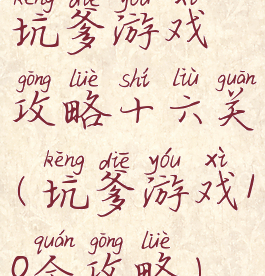 kēng diē yóu xì
坑爹游戏
gōng lüè shí liù guān
攻略十六关
kēng diē yóu xì
(坑爹游戏1
quán gōng lüè
0全攻略)